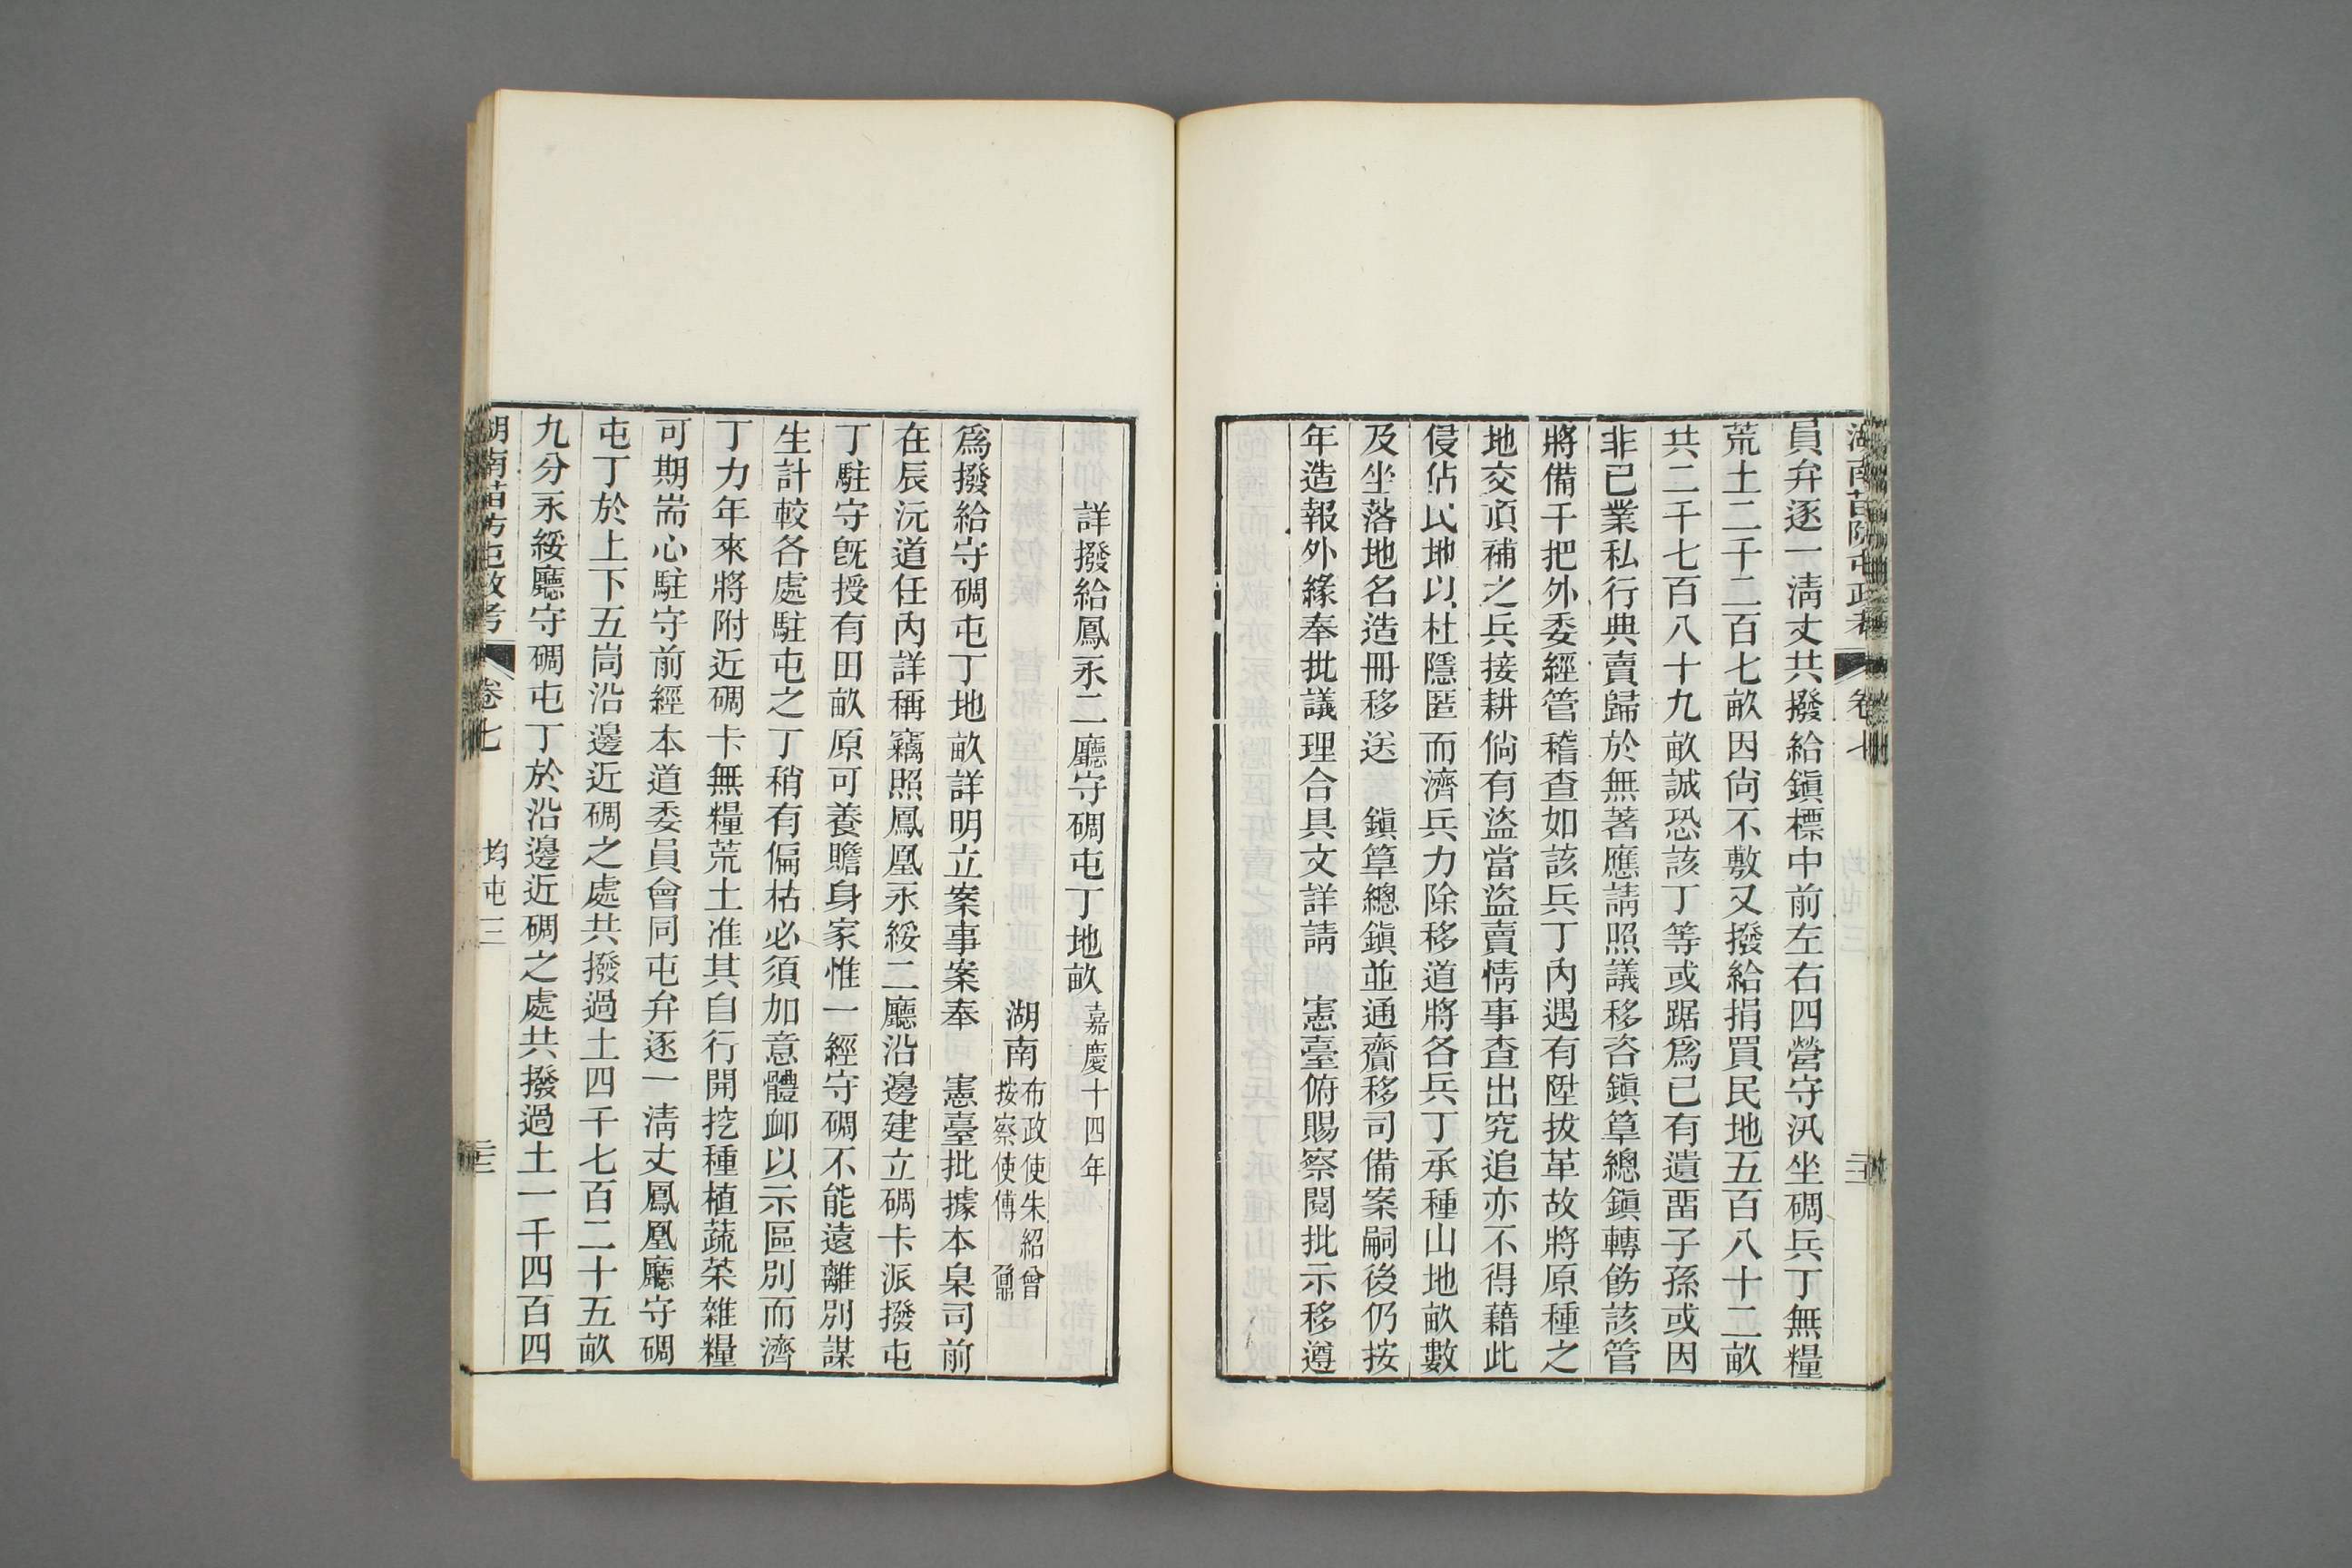 湖南苗防屯政考 卷七
員弁逐一淸丈共撥給鎭標中前左右四營守汛坐碉兵丁無糧
荒土二千二百七畝因尙不敷又撥給捐買民地五百八十二畝
共二千七百八十九畝誠恐該丁等或踞爲已有遺畱子孫或因
非已業私行典賣歸於無著應請照議移咨鎭筸總鎭轉飭該管
將備千把外委經管稽查如該兵丁內遇有陞拔革故將原種之
地交頂補之兵接耕倘有盜當盜賣情事查出究追亦不得藉此
侵佔民地以杜隱匿而濟兵力除移道將各兵丁承種山地畝數
及坐落地名造冊移送 鎭筸總鎭並通齎移司備案嗣後仍按
年造報外緣奉批議理合具文詳請 憲臺俯賜察閱批示移遵
詳撥給鳳永二廳守碉屯丁地畝 嘉慶十四年
湖南 布政使朱紹曾 按察使傅鼐
爲撥給守碉屯丁地畝詳明立案事案奉 憲臺批據本臬司前
在辰沅道任內詳稱竊照鳳凰永綏二廳沿邊建立碉卡派撥屯
丁駐守旣授有田畝原可養贍身家惟一經守碉不能遠離別謀
生計較各處駐屯之丁稍有偏枯必須加意體卹以示區別而濟
丁力年來將附近碉卡無糧荒土准其自行開挖種植蔬菜雜糧
可期耑心駐守前經本道委員會同屯弁逐一淸丈鳳凰廳守碉
屯丁於上下五峝沿邊近碉之處共撥過土四千七百二十五畝
九分永綏廳守碉屯丁於沿邊近碉之處共撥過土一千四百四
湖南苗防屯政考 卷七 均屯三